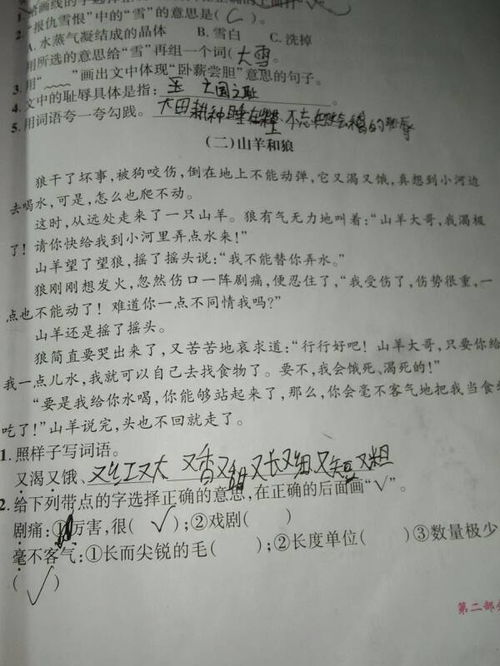 2."报仇雪恨"中的"雪"的意思是( C 。 )
A.水蒸气凝结成的晶体 B.雪白 C.洗掉
用所选的意思给"雪"再组一个词(大雪。
3.用"﹏﹏"画出文中体现"卧薪尝胆"意思的句子。
4.文中的耻辱具体是指:
5.用词语夸一夸勾践。
(二)山羊和狼
狼干了坏事,被狗咬伤,倒在地上不能动弹,它又渴又饿,真想到小河边
去喝水,可是,怎么也爬不动。
这时,从远处走来了一只山羊。狼有气无力地叫着:"山羊大哥,我渴极
了!请你快给我到小河里弄点水来!"
山羊望了望狼,摇了摇头说:"我不能替你弄水。"
狼刚刚想发火,忽然伤口一阵剧痛,便忍住了,"我受伤了,伤势很重,一
点也不能动了!难道你一点不同情我吗?"
山羊还是摇了摇头。
狼简直要哭出来了,又苦苦地哀求道:"行行好吧!山羊大哥,只要你给
我一点儿水,我就可以自己去找食物了。要不,我会饿死、渴死的!"
"要是我给你水喝,你能够站起来了,那么,你会毫不客气地把我当食
吃了!"山羊说完,头也不回就走了。
1.照样子写词语。
又渴又饿、又红又大 又香又甜 又长又细、又短又粗
2.给下列带点的字选择正确的意思,在正确的后面画"√"。
剧痛:①厉害,很( √ );②戏剧( )
毫不客气:①长而尖锐的毛( );②长度单位( );③数量极少
( √ )
第二部分